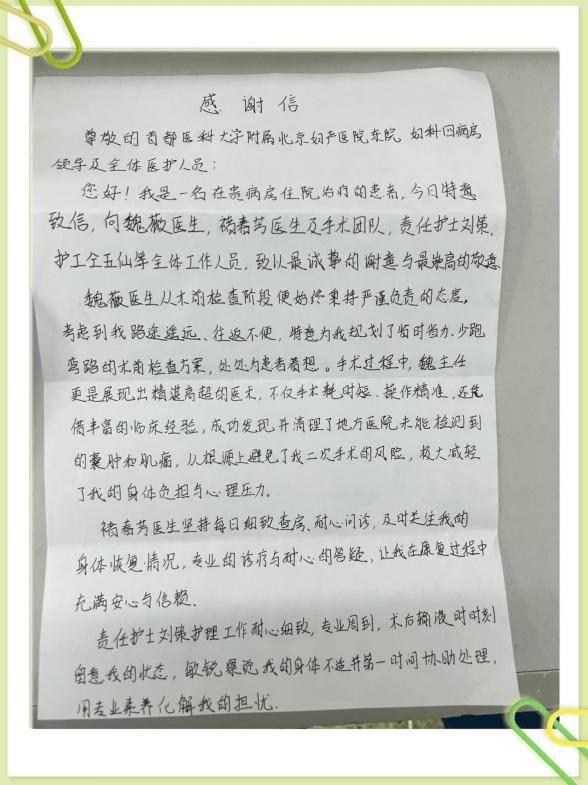 感谢信
尊敬的首都医科大学附属北京妇产医院东院 妇科四病房
领导及全体医护人员：
您好！我是一名在贵病房住院治疗的患者，今日特意
致信，向魏薇医生，褚春芳医生及手术团队，责任护士刘策，
护工仝五仙等全体工作人员，致以最诚挚的谢意与最崇高的敬意
魏薇医生从术前检查阶段便始终秉持严谨负责的态度。
考虑到我路途遥远、往返不便，特意为我规划了省时省力、少跑
弯路的术前检查方案，处处为患者着想。手术过程中，魏主任
更是展现出精湛高超的医术，不仅手术耗时短、操作精准，还凭
借丰富的临床经验，成功发现并清理了地方医院未能检测到
的囊肿和肌瘤，从根源上避免了我二次手术的风险，极大减轻
了我的身体负担与心理压力。
褚春芳医生坚持每日细致查房、耐心问诊，及时关注我的
身体恢复情况，专业的诊疗与耐心的答疑，让我在康复过程中
充满安心与信赖.
责任护士刘策护理工作耐心细致，专业周到，术后输液时时刻
留意我的状态，敏锐察觉我的身体不适并第一时间协助处理，
用专业素养化解我的担忧.